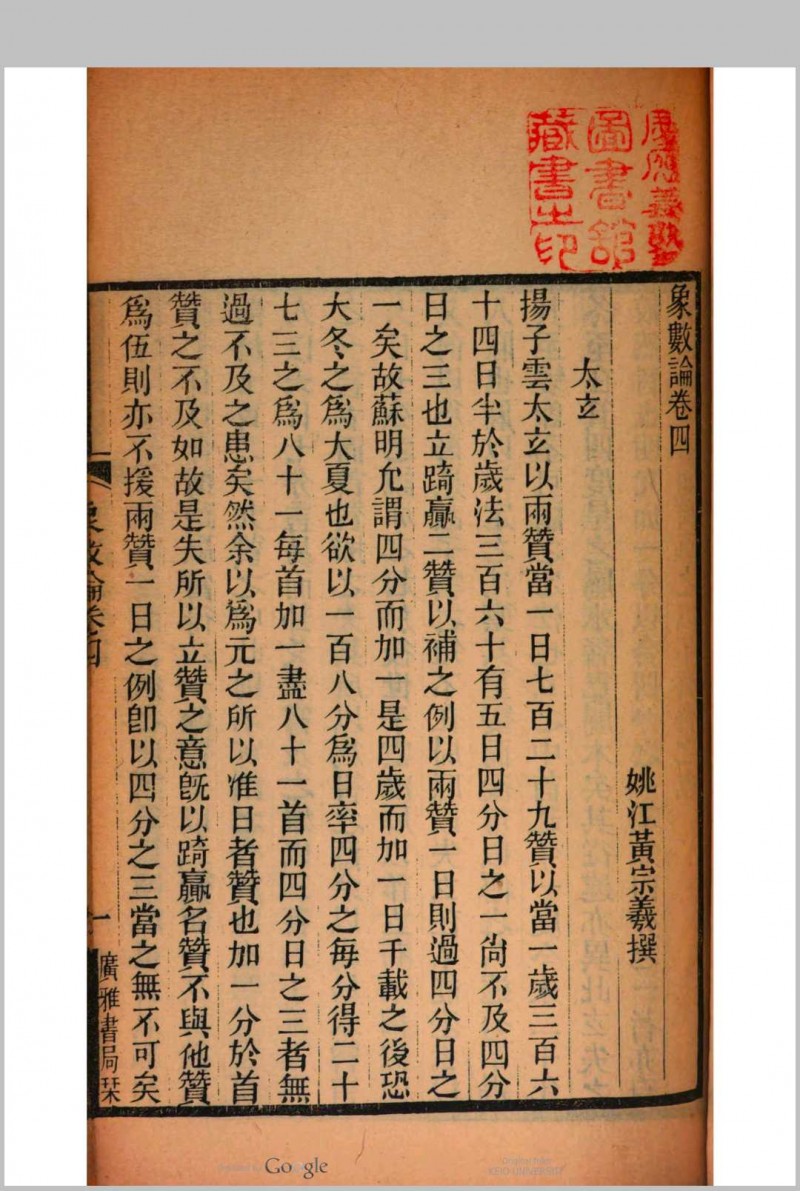 象數論卷四
姚江黃宗羲撰
太玄
揚子雲太玄以兩贊當一日七百二十九贊以當一歲三百六
十四日半於歲法三百六十有五日四分日之一尙不及四分
日之三也立踦贏二贊以補之例以兩贊一日則過四分日之
一矣故蘇明允謂四分而加一是四歲而加一日千載之後恐
大冬之爲大夏也欲以一百八分爲日率四分之每分得二十
七三之爲八十一每首加一盡八十一首而四分日之三者無
過不及之患矣然余以爲元之所以准日者贊也加一分於首
贊之不及如故是失所以立贊之意旣以踦贏名贊不與他贊
爲伍則亦不援兩贊一日之例卽以四分之三當之無不可矣
象數論卷四
一
廣雅書局栞
慶應義塾
圖書館
藏書之印
Google